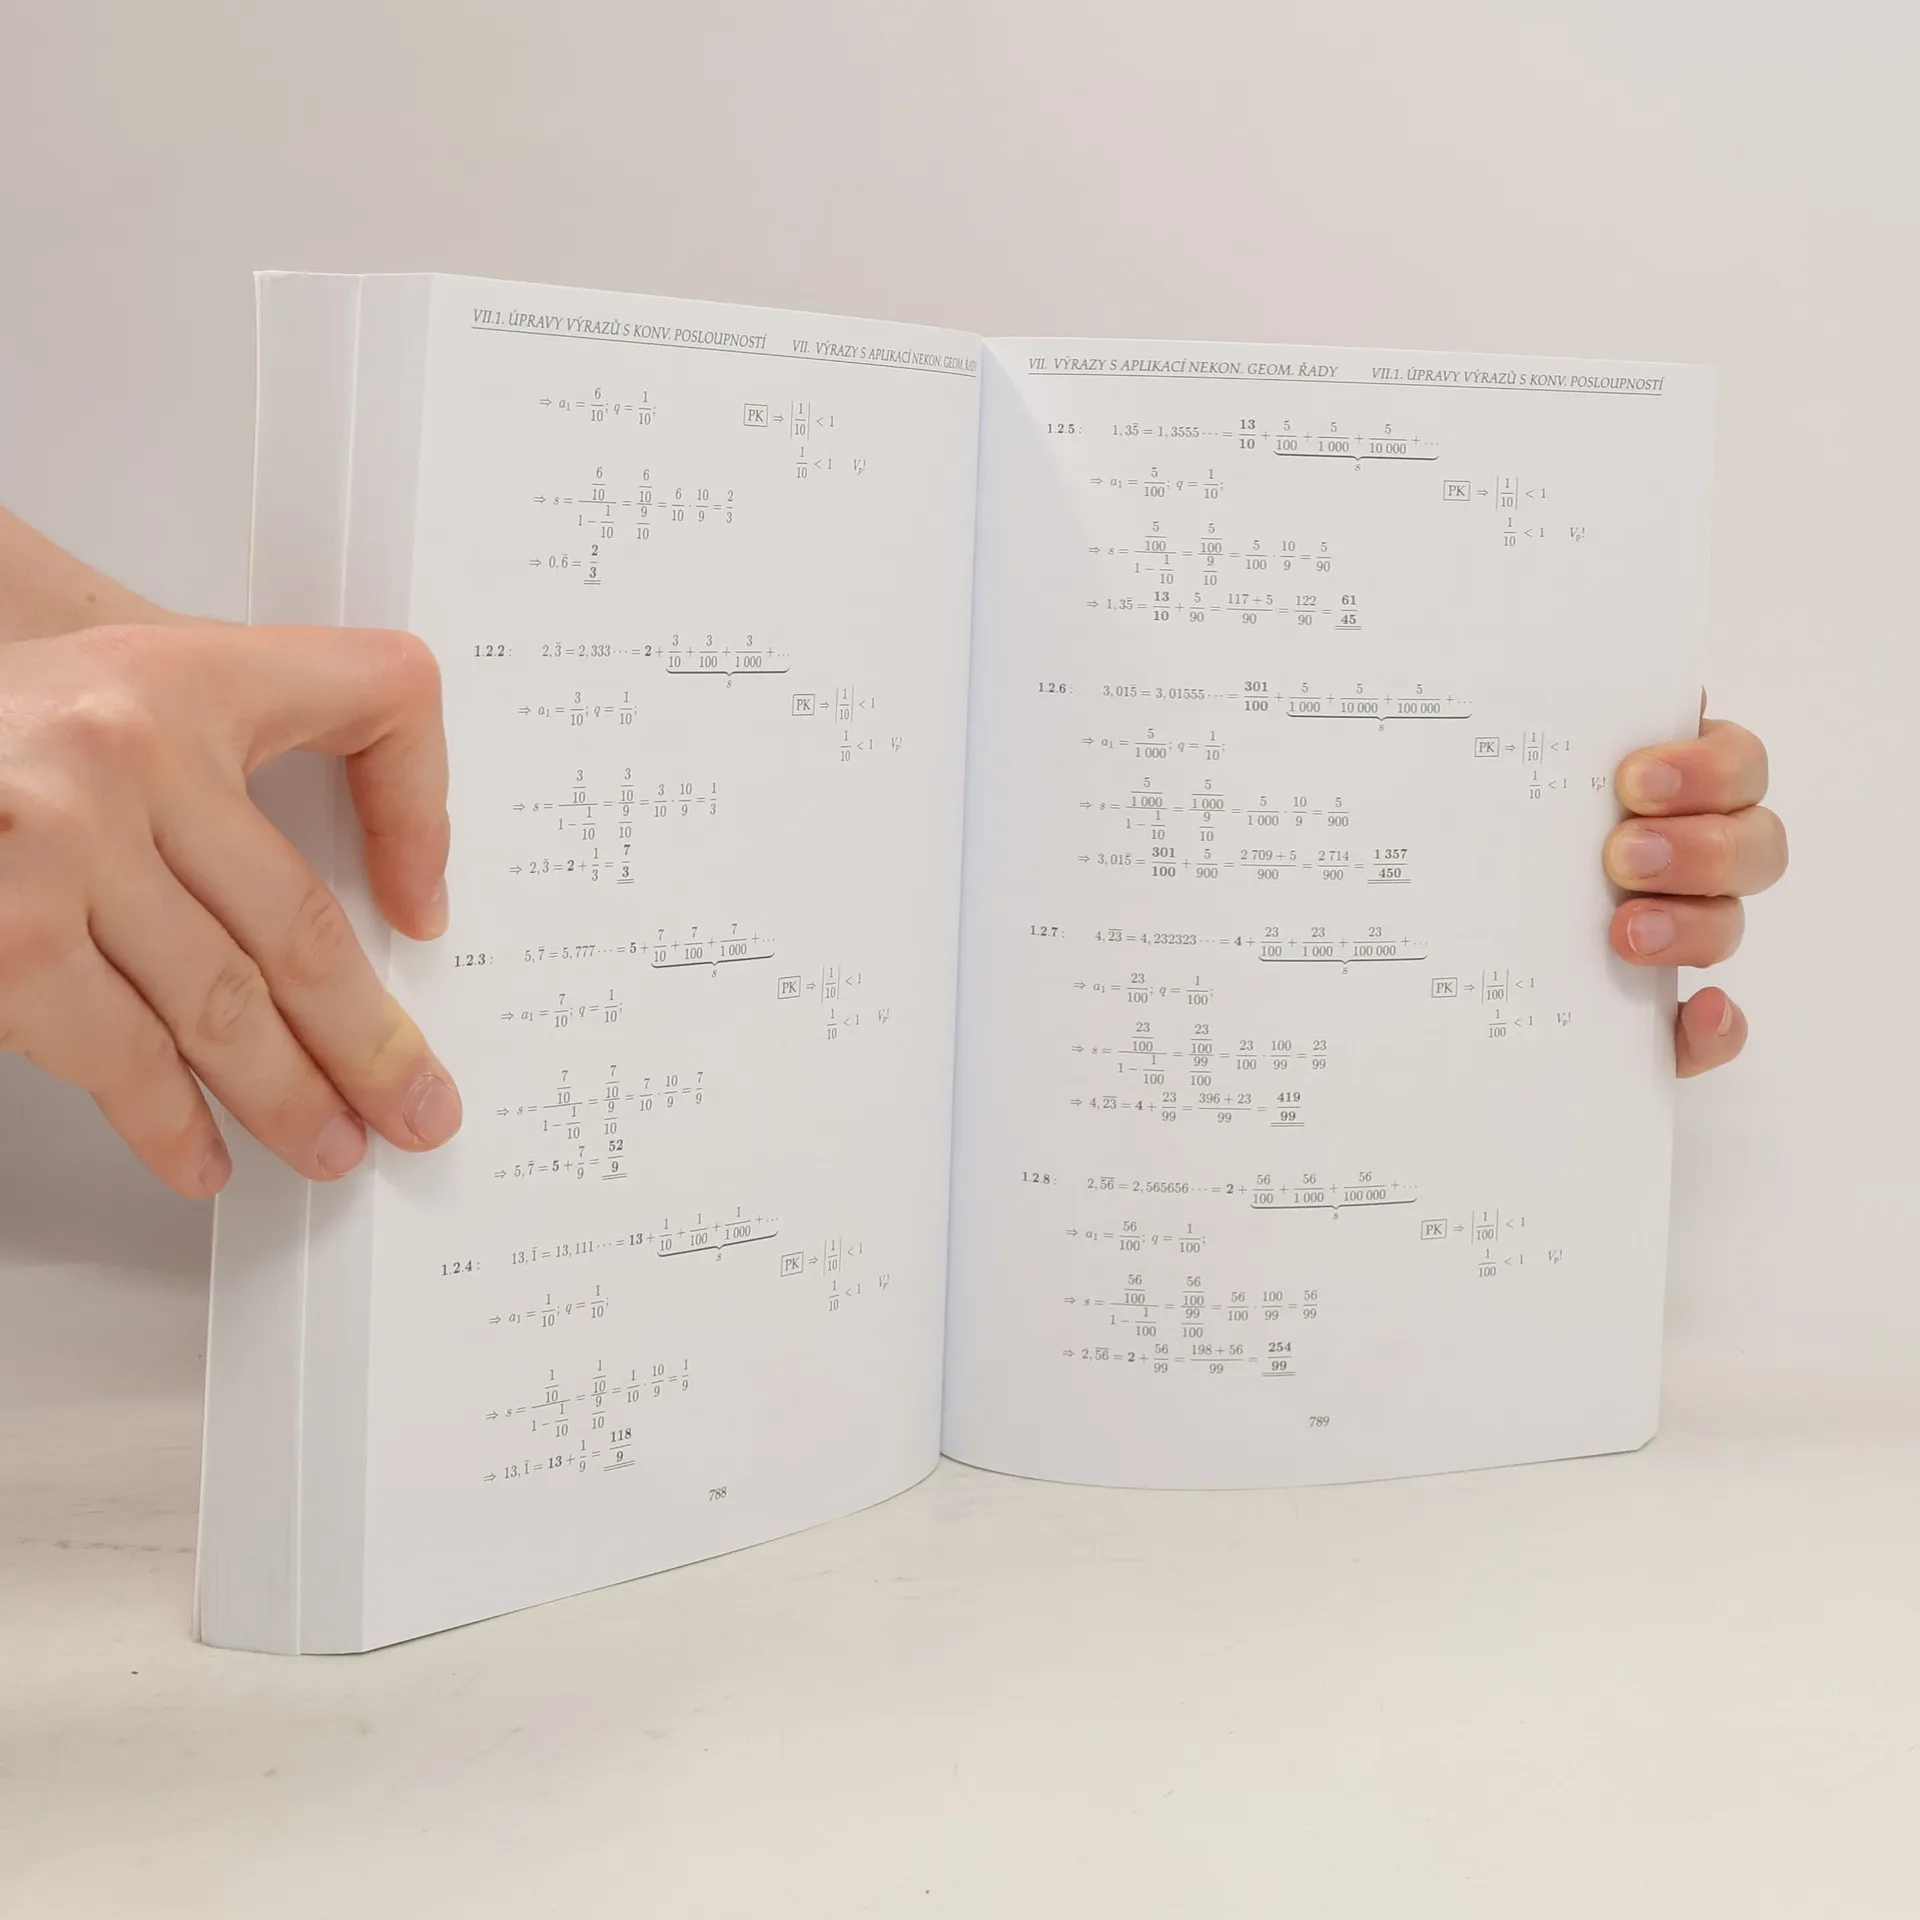 VII.1. ÚPRAVY VÝRAZŮ S KONV. POSLOUPNOSTÍ VII. VÝRAZY S APLIKACÍ NEKON. GEOM. ŘADY
⇒ a₁ = 6/10; q = 1/10; PK ⇒ |1/10| < 1
1/10 < 1 Vₚ!
⇒ s = (6/10)/(1 − 1/10) = (6/10)/(9/10) = 6/10 · 10/9 = 2/3
⇒ 0,6̄ = 2/3
1.2.2 : 2,3̄ = 2,333 ··· = 2 + 3/10 + 3/100 + 3/1 000 + ...
s
⇒ a₁ = 3/10; q = 1/10; PK ⇒ |1/10| < 1
1/10 < 1 Vₚ!
⇒ s = (3/10)/(1 − 1/10) = (3/10)/(9/10) = 3/10 · 10/9 = 1/3
⇒ 2,3̄ = 2 + 1/3 = 7/3
1.2.3 : 5,7̄ = 5,777 ··· = 5 + 7/10 + 7/100 + 7/1 000 + ...
s
⇒ a₁ = 7/10; q = 1/10; PK ⇒ |1/10| < 1
1/10 < 1 Vₚ!
⇒ s = (7/10)/(1 − 1/10) = (7/10)/(9/10) = 7/10 · 10/9 = 7/9
⇒ 5,7̄ = 5 + 7/9 = 52/9
1.2.4 : 13,1̄ = 13,111 ··· = 13 + 1/10 + 1/100 + 1/1 000 + ...
s
⇒ a₁ = 1/10; q = 1/10; PK ⇒ |1/10| < 1
1/10 < 1 Vₚ!
⇒ s = (1/10)/(1 − 1/10) = (1/10)/(9/10) = 1/10 · 10/9 = 1/9
⇒ 13,1̄ = 13 + 1/9 = 118/9
788
VII. VÝRAZY S APLIKACÍ NEKON. GEOM. ŘADY VII.1. ÚPRAVY VÝRAZŮ S KONV. POSLOUPNOSTÍ
1.2.5 : 1,35̄ = 1,3555 ··· = 13/10 + 5/100 + 5/1 000 + 5/10 000 + ...
s
⇒ a₁ = 5/100; q = 1/10; PK ⇒ |1/10| < 1
1/10 < 1 Vₚ!
⇒ s = (5/100)/(1 − 1/10) = (5/100)/(9/10) = 5/100 · 10/9 = 5/90
⇒ 1,35̄ = 13/10 + 5/90 = (117 + 5)/90 = 122/90 = 61/45
1.2.6 : 3,015̄ = 3,01555 ··· = 301/100 + 5/1 000 + 5/10 000 + 5/100 000 + ...
s
⇒ a₁ = 5/1 000; q = 1/10; PK ⇒ |1/10| < 1
1/10 < 1 Vₚ!
⇒ s = (5/1 000)/(1 − 1/10) = (5/1 000)/(9/10) = 5/1 000 · 10/9 = 5/900
⇒ 3,015̄ = 301/100 + 5/900 = (2 709 + 5)/900 = 2 714/900 = 1 357/450
1.2.7 : 4,2̄3̄ = 4,232323 ··· = 4 + 23/100 + 23/1 000 + 23/100 000 + ...
s
⇒ a₁ = 23/100; q = 1/100; PK ⇒ |1/100| < 1
1/100 < 1 Vₚ!
⇒ s = (23/100)/(1 − 1/100) = (23/100)/(99/100) = 23/100 · 100/99 = 23/99
⇒ 4,2̄3̄ = 4 + 23/99 = (396 + 23)/99 = 419/99
1.2.8 : 2,5̄6̄ = 2,565656 ··· = 2 + 56/100 + 56/1 000 + 56/100 000 + ...
s
⇒ a₁ = 56/100; q = 1/100; PK ⇒ |1/100| < 1
1/100 < 1 Vₚ!
⇒ s = (56/100)/(1 − 1/100) = (56/100)/(99/100) = 56/100 · 100/99 = 56/99
⇒ 2,5̄6̄ = 2 + 56/99 = (198 + 56)/99 = 254/99
789